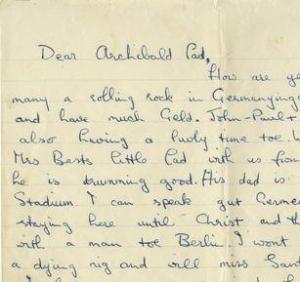 Dear Archibald Cad,
How are ye
many a rolling rock in Germanying
and have much Geld. John-Paul +
also having a lively time toe. w
Mrs Bests little Cad with us from
he is drumming good. His dad is
Stadium. I can speak gut Germe
staying here until Christ and th
with a man toe Berlin. I wont
a dying nig and will miss Sant